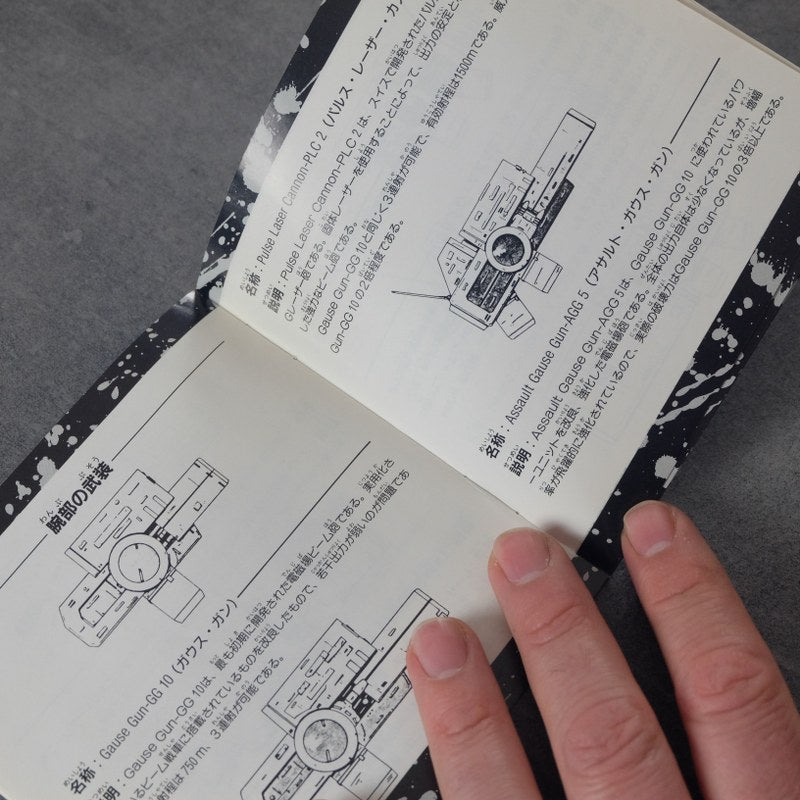 腕部の武装
名称：Gause Gun-GG 10 (ガウス・ガン)
説明：Gause Gun-GG 10は、最も初期に開発された電磁場ビーム砲である。実用化さ
いるビーム戦車に搭載されているものを改良したもので、若干出力が弱いのが問題であ
射程は750m、3連射が可能である。
名称：Pulse Laser Cannon-PLC 2 (パルス・レーザー・カノ
説明：Pulse Laser Cannon-PLC 2 は、スイスで開発されたパルス
Gレーザー砲である。固体レーザーを使用することによって、出力の安定と
した強力なビーム砲である。
Gause Gun-GG 10と同じく3連射が可能で、有効射程は1500mである。威
Gun-GG 10の2倍程度である。
名称：Assault Gause Gun-AGG 5 (アサルト・ガウス・ガン)
説明：Assault Gause Gun-AGG 5は、Gause Gun-GG 10 に使われているパワ
ーユニットを改良、強化した電磁場砲である。全体の出力自体は少なくなっているが、増幅
率が飛躍的に強化されているので、実際の破壊力はGause Gun-GG 10の3倍以上である。